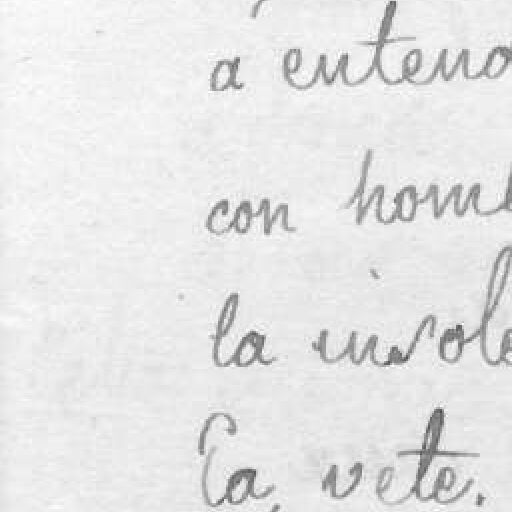 a entend
con homb
la insole
Ea, vete.